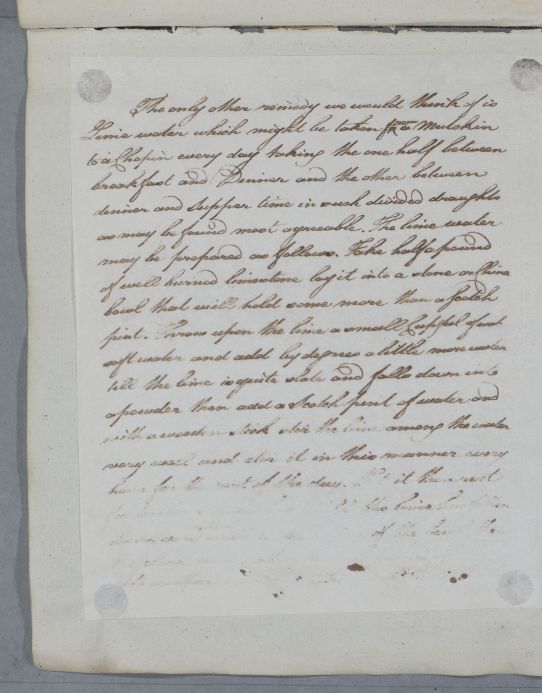 The only other remedy we would think of is
Lime water which might be taken from a Mutchkin
to a Chopin every day taking the one half between
breakfast and Dinner and the other between
dinner and Supper time in such divided draughts
as may be found most agreeable. The lime water
may be prepared as follows. Take half a pound
of well burned limestone lay it into a stone or China
bowl that will hold some more than a Scotch
pint. Throw upon the lime a small Cupful of
soft water and add by degrees a little more water
till the lime is quite and falls down into
a powder then add a Scotch pint of water and
with a wooden stick stir the lime among the water
very well and stir it in this manner every
hour for the rest of the day. it then
the lime
of the